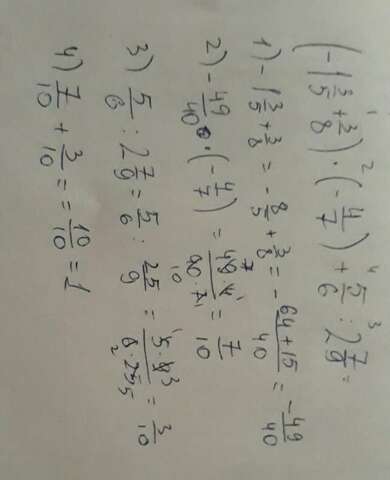 (-1 3/5 + 3/8) · (-4/7) + 5/6 : 2 7/9 =
1) -1 3/5 + 3/8 = -8/5 + 3/8 = -64+15/40 = -49/40
2) -49/40 · (-4/7) = 49·4/40·7 = 7/10
3) 5/6 : 2 7/9 = 5/6 : 25/9 = 5·9/6·25 = 3/10
4) 7/10 + 3/10 = = 10/10 = 1